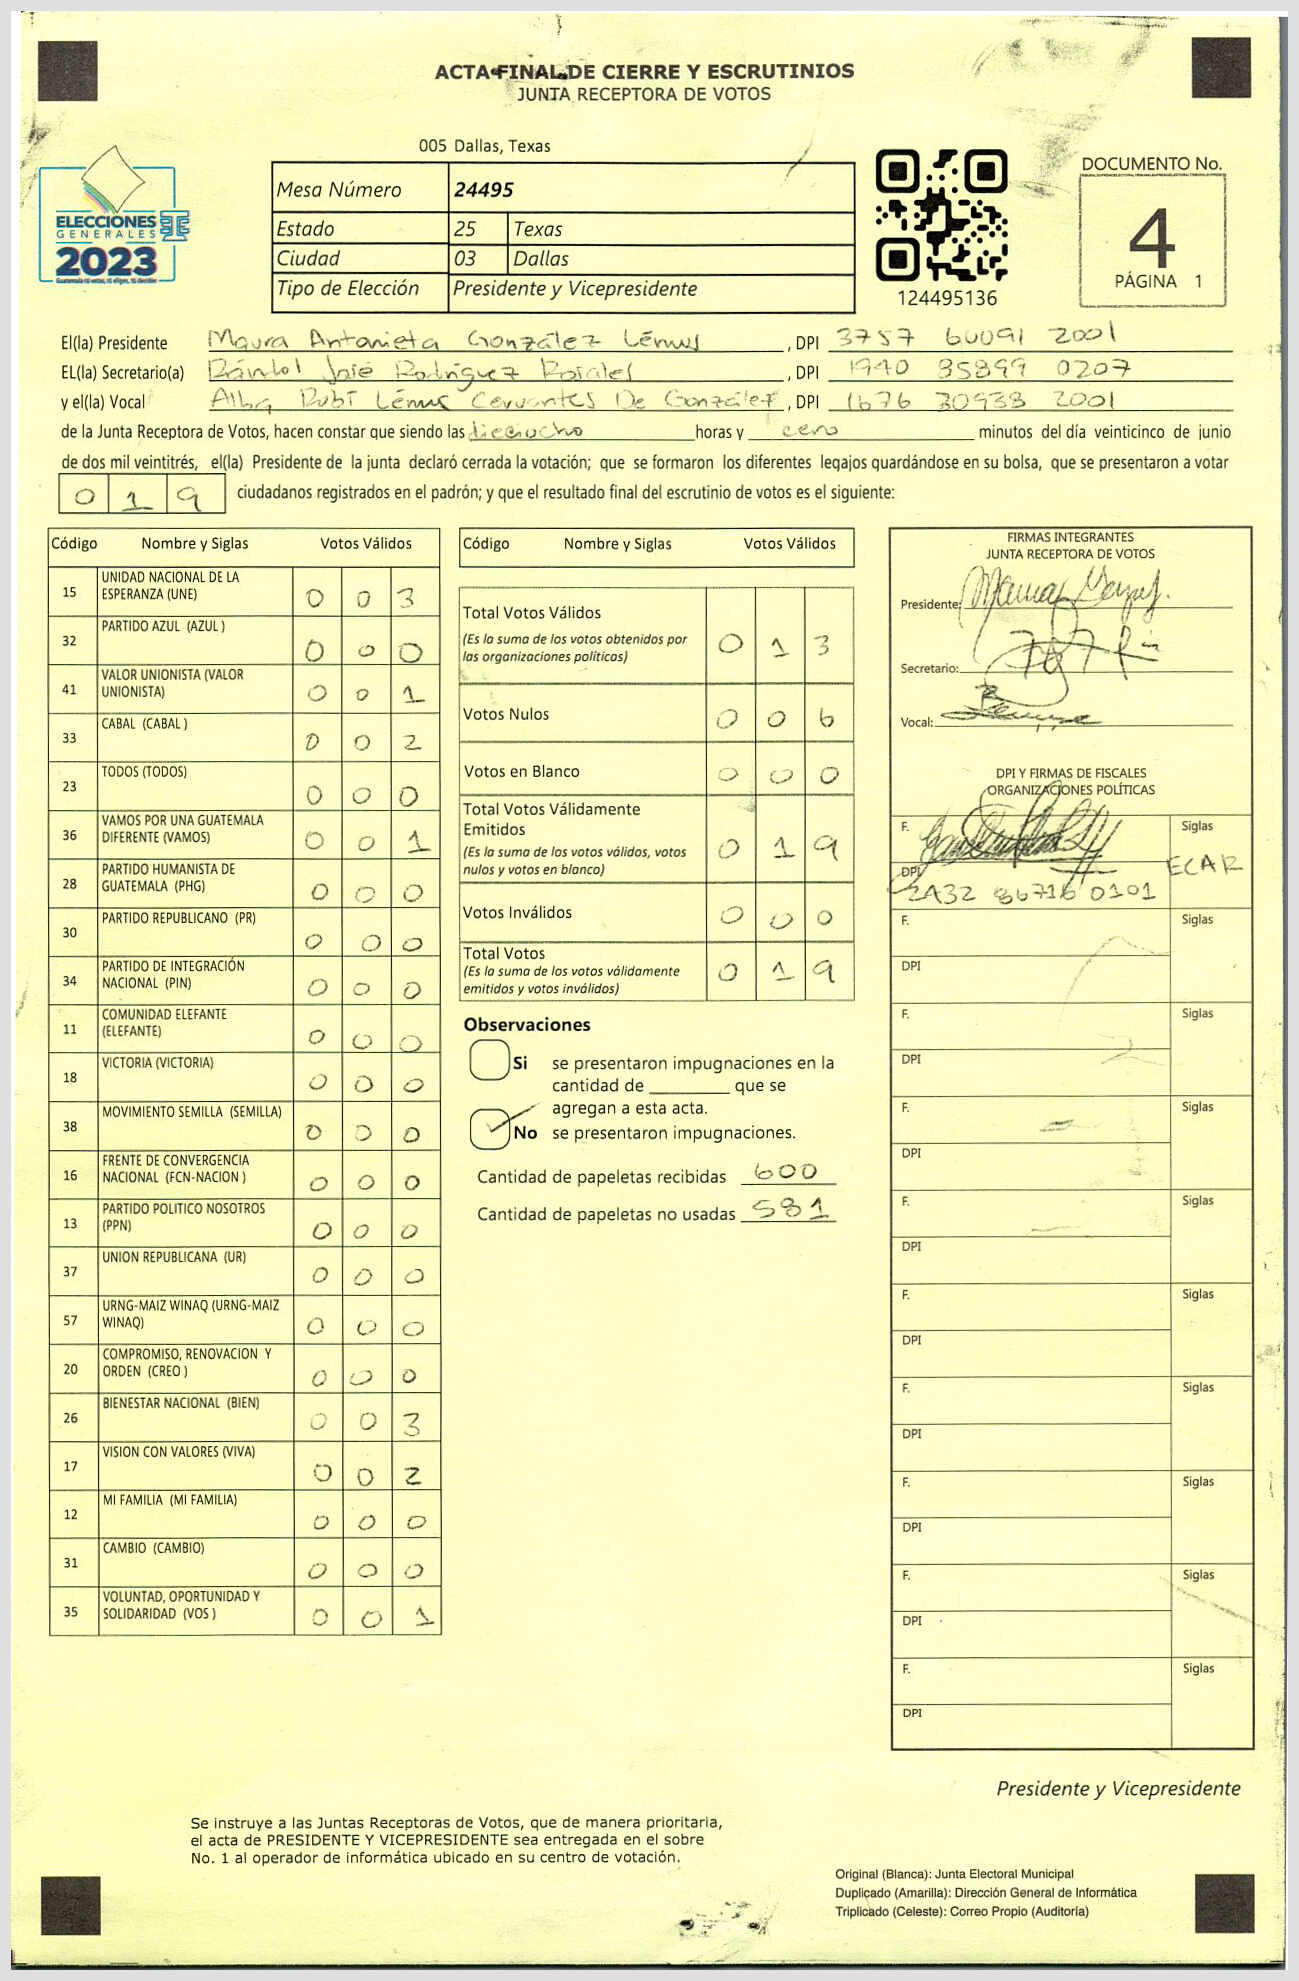 ACTA FINAL DE CIERRE Y ESCRUTINIOS
JUNTA RECEPTORA DE VOTOS
005 Dallas, Texas
ELECCIONES
GENERALES
2023
Mesa Número 24495
Estado 25 Texas
Ciudad 03 Dallas
Tipo de Elección Presidente y Vicepresidente
124495136
DOCUMENTO No.
4
PÁGINA 1
El(la) Presidente Maura Antonieta González Lémus, DPI 3757 60091 2001
EL(la) Secretario(a) Rándol José Rodríguez Rosales, DPI 1940 85899 0207
y el(la) Vocal Alba Rubí Lémus Cervantes De González, DPI 1676 30938 2001
de la Junta Receptora de Votos, hacen constar que siendo las dieciocho horas y cero minutos del día veinticinco de junio
de dos mil veintitrés, el(la) Presidente de la junta declaró cerrada la votación; que se formaron los diferentes legajos guardándose en su bolsa, que se presentaron a votar
0 1 9 ciudadanos registrados en el padrón; y que el resultado final del escrutinio de votos es el siguiente:
Código Nombre y Siglas Votos Válidos
15 UNIDAD NACIONAL DE LA ESPERANZA (UNE) 0 0 3
32 PARTIDO AZUL (AZUL ) 0 0 0
41 VALOR UNIONISTA (VALOR UNIONISTA) 0 0 1
33 CABAL (CABAL ) 0 0 2
23 TODOS (TODOS) 0 0 0
36 VAMOS POR UNA GUATEMALA DIFERENTE (VAMOS) 0 0 1
28 PARTIDO HUMANISTA DE GUATEMALA (PHG) 0 0 0
30 PARTIDO REPUBLICANO (PR) 0 0 0
34 PARTIDO DE INTEGRACIÓN NACIONAL (PIN) 0 0 0
11 COMUNIDAD ELEFANTE (ELEFANTE) 0 0 0
18 VICTORIA (VICTORIA) 0 0 0
38 MOVIMIENTO SEMILLA (SEMILLA) 0 0 0
16 FRENTE DE CONVERGENCIA NACIONAL (FCN-NACION ) 0 0 0
13 PARTIDO POLITICO NOSOTROS (PPN) 0 0 0
37 UNION REPUBLICANA (UR) 0 0 0
57 URNG-MAIZ WINAQ (URNG-MAIZ WINAQ) 0 0 0
20 COMPROMISO, RENOVACION Y ORDEN (CREO ) 0 0 0
26 BIENESTAR NACIONAL (BIEN) 0 0 3
17 VISION CON VALORES (VIVA) 0 0 2
12 MI FAMILIA (MI FAMILIA) 0 0 0
31 CAMBIO (CAMBIO) 0 0 0
35 VOLUNTAD, OPORTUNIDAD Y SOLIDARIDAD (VOS ) 0 0 1
Código Nombre y Siglas Votos Válidos
Total Votos Válidos 0 1 3
(Es la suma de los votos obtenidos por
las organizaciones políticas)
Votos Nulos 0 0 6
Votos en Blanco 0 0 0
Total Votos Válidamente
Emitidos 0 1 9
(Es la suma de los votos válidos, votos
nulos y votos en blanco)
Votos Inválidos 0 0 0
Total Votos 0 1 9
(Es la suma de los votos válidamente
emitidos y votos inválidos)
Observaciones
Si se presentaron impugnaciones en la
cantidad de ________ que se
agregan a esta acta.
No se presentaron impugnaciones.
Cantidad de papeletas recibidas 600
Cantidad de papeletas no usadas 581
FIRMAS INTEGRANTES
JUNTA RECEPTORA DE VOTOS
Presidente:
Secretario:
Vocal:
DPI Y FIRMAS DE FISCALES
ORGANIZACIONES POLÍTICAS
F. Siglas
DPI ECAR
2432 86716 0101
F. Siglas
DPI
F. Siglas
DPI
F. Siglas
DPI
F. Siglas
DPI
F. Siglas
DPI
F. Siglas
DPI
F. Siglas
DPI
F. Siglas
DPI
F. Siglas
DPI
Presidente y Vicepresidente
Se instruye a las Juntas Receptoras de Votos, que de manera prioritaria,
el acta de PRESIDENTE Y VICEPRESIDENTE sea entregada en el sobre
No. 1 al operador de informática ubicado en su centro de votación.
Original (Blanca): Junta Electoral Municipal
Duplicado (Amarilla): Dirección General de Informática
Triplicado (Celeste): Correo Propio (Auditoría)